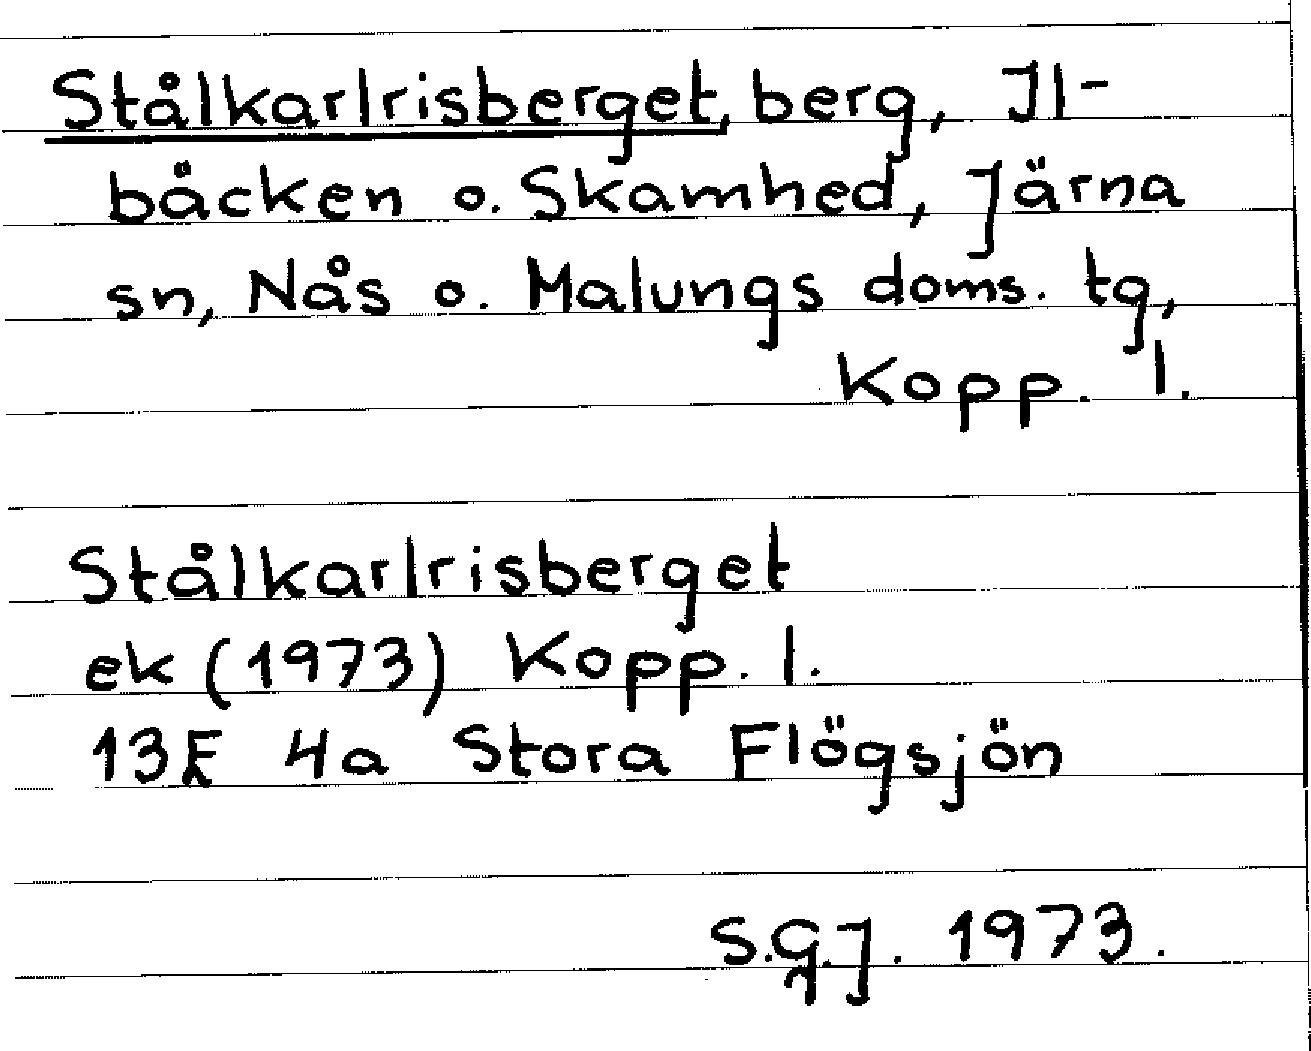 Stålkarlrisberget, berg, Il-
bäcken o. Skamhed, Järna
sn, Nås o. Malungs doms. tg,
Kopp. l.
Stålkarlrisberget
ek (1973) Kopp. l.
13E 4a Stora Flögsjön
S.G.J. 1973.